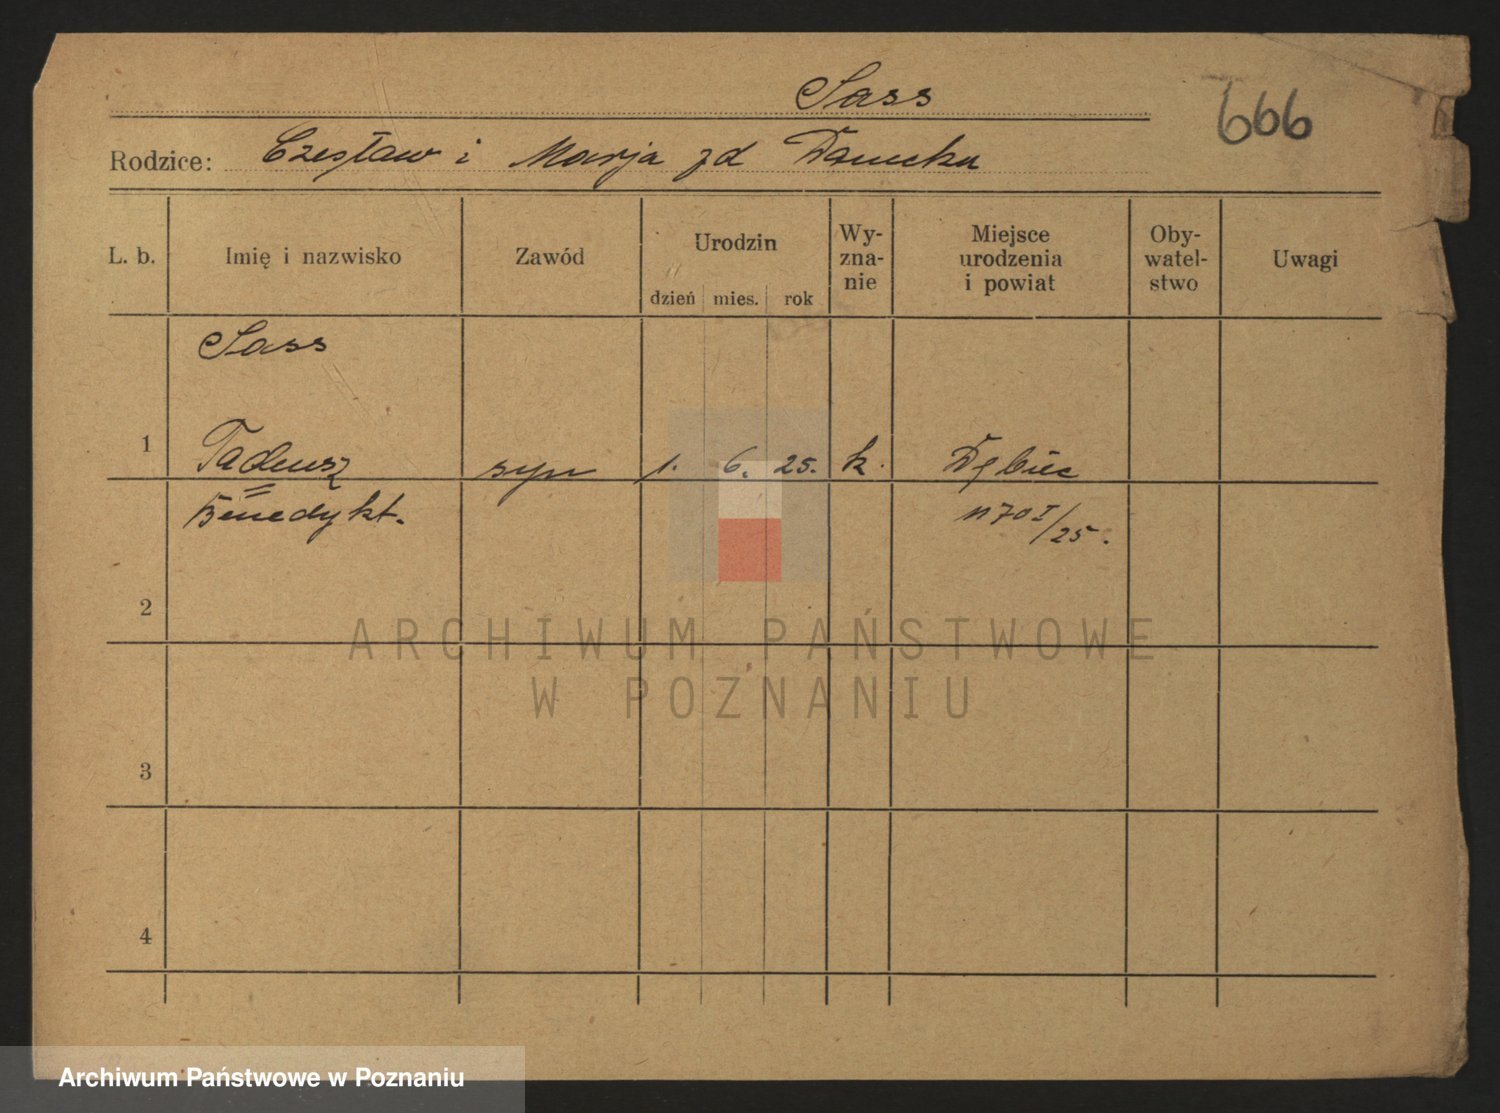 Sass
666
Rodzice: Czesław i Marja zd
L. b. Imię i nazwisko Zawód Urodzin dzień mies. rok Wy-zna-nie Miejsce urodzenia i powiat Oby-watel-stwo Uwagi
Sass
1 Tadeusz syn 1. 6. 25. k. Dębiec
Benedykt. n 70 I/25.
2
3
4
ARCHIWUM PAŃSTWOWE
W POZNANIU
Archiwum Państwowe w Poznaniu